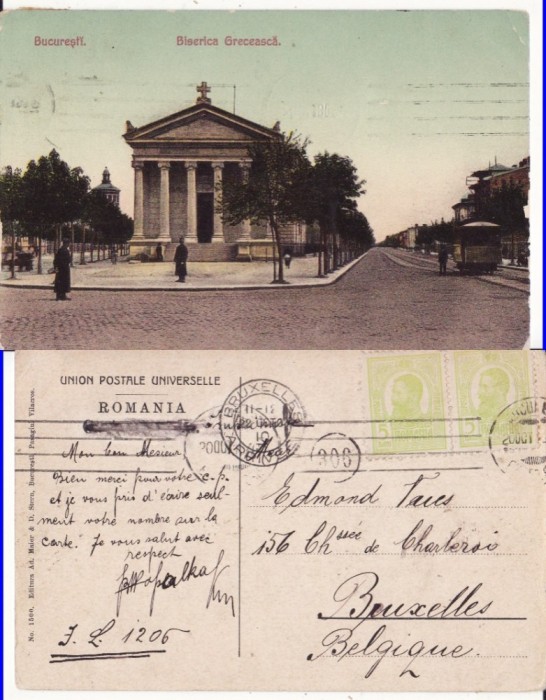 București.
Biserica Grecească.
UNION POSTALE UNIVERSELLE
ROMANIA
BRUXELLES
306
5
5
No. 1560. Editura Ad. Maier & D. Stern, București Pasagiul Vilacros.
Mon Cou Mesieur
Bien merci pour votre c. p.
et je vous pris d'écrire seul-
ment votre nombre sur la
carte. Je vous salut avec
respect
J. L. 1206
Edmond
156 Chssée de Charleroi
Bruxelles
Belgique.